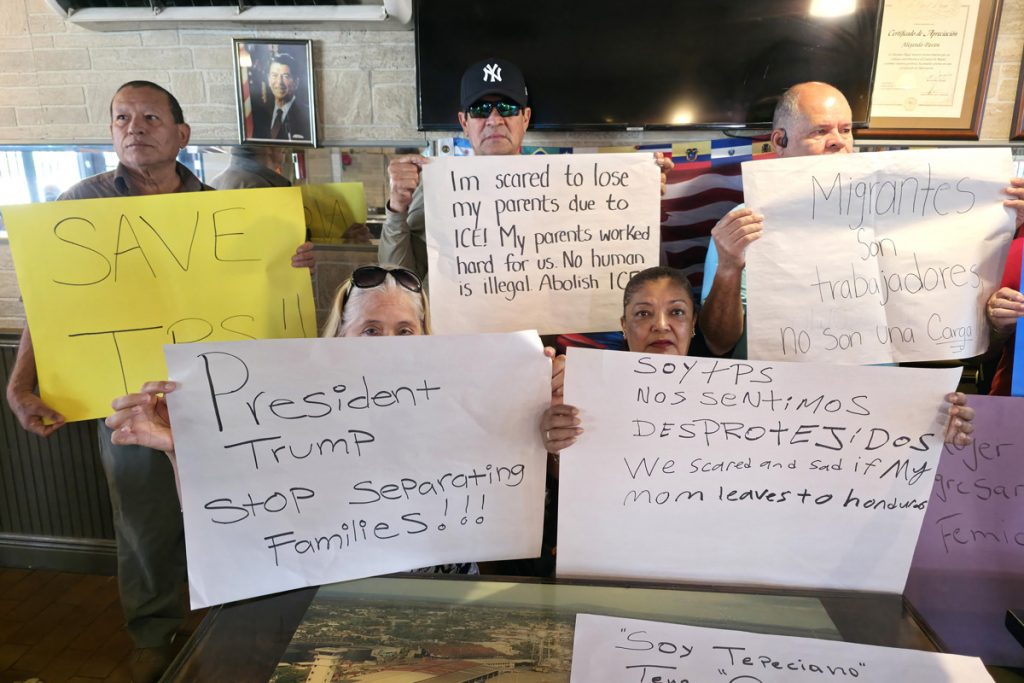 Certificado de Apreciación
Alejandro Pavón
NY
SAVE
TPS!!
Im scared to lose
my parents due to
ICE! My parents worked
hard for us. No human
is illegal. Abolish ICE
Migrantes
Son
trabajadores,
no son una Carga
President
Trump
Stop Separating
Families!!!
Soy tPS
Nos sentimos
Desprotejidos
We scared and sad if My
mom leaves to honduras
"Soy Tepeciano"